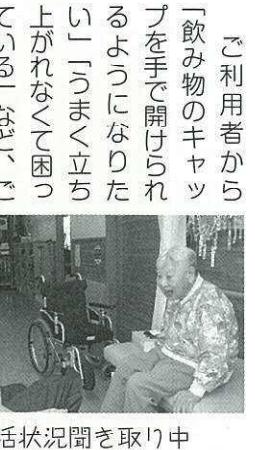 ご利用者から
「飲み物のキャッ
プを手で開けられ
るようになりた
い」「うまく立ち
上がれなくて困っ
ている」など、ご
活状況聞き取り中